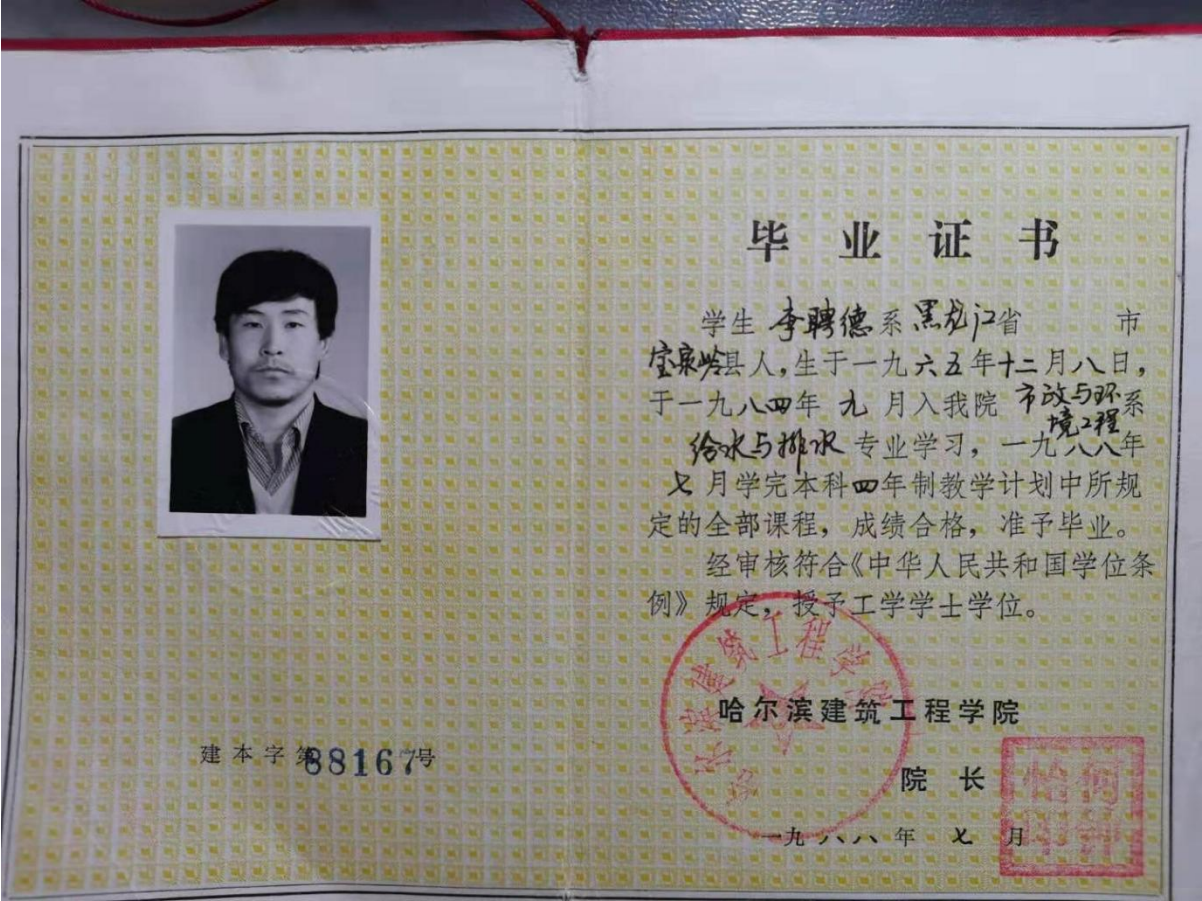 建本字第88167号
毕业证书
学生 李聘德 系 黑龙江省 市
宝泉岭县人，生于一九六五年十二月八日，
于一九八四年 九 月入我院 市政与环境工程系
给水与排水 专业学习，一九八八年
七月学完本科四年制教学计划中所规
定的全部课程，成绩合格，准予毕业。
经审核符合《中华人民共和国学位条
例》规定，授予工学学士学位。
哈尔滨建筑工程学院
哈尔滨建筑工程学院
院 长
一九八八年 七 月